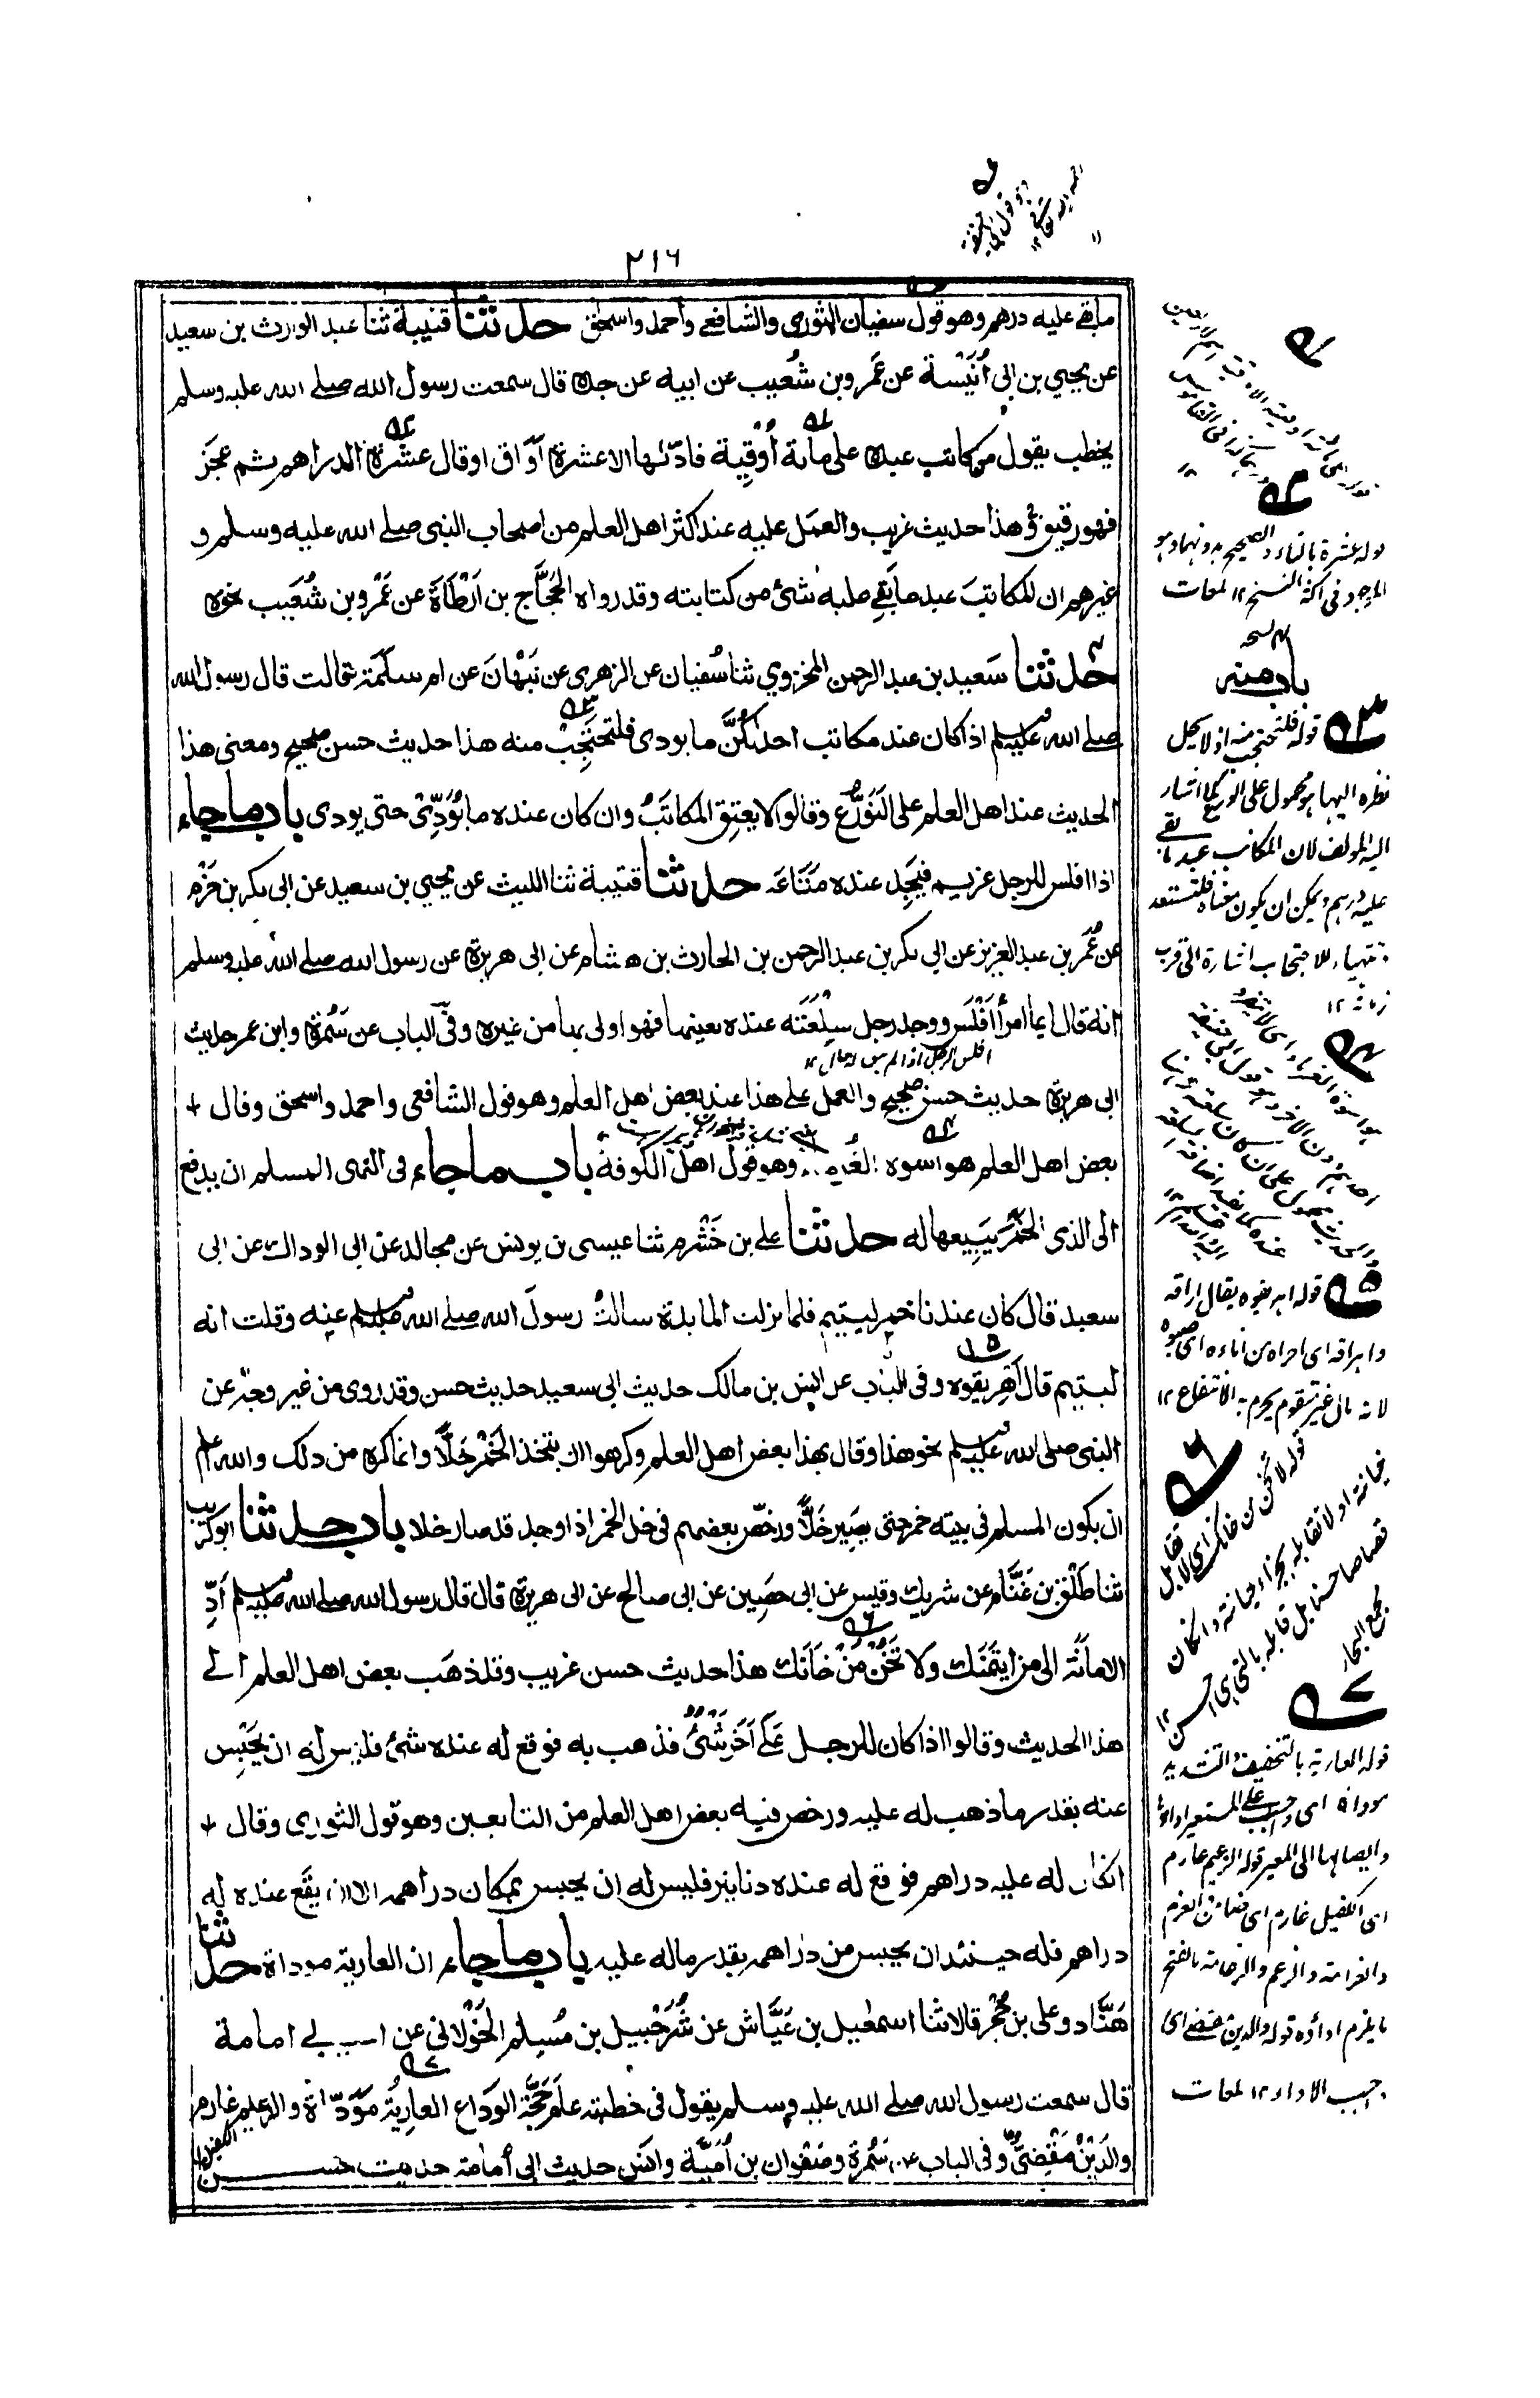 ٢١٦
مابقے عليه درهم وهو قول سفيان الثوری والشافعے وأحمد واسحٰق حدثنا قتيبة ثنا عبد الوارث بن سعيد
عن يحيي بن ابی أُنَيْسة عن عَمرو بن شُعيب عن ابيه عن جده قال سمعت رسول الله صلے الله عليه وسلم
يخطب يقول من كاتب عبده علی مائة أُوْقِية فادّٰها الا عشرة أوَاق او قال عشرة الدراهم ثم عجَز
فهو رقيق وهذا حديث غريب والعمَل عليه عند اكثر اهل العلم من اصحاب النبی صلے الله عليه وسلم و
غيرهم ان المكاتبَ عبد مابَقِے عليه شئ من كتابته وقد رواه الحَجَّاج بن اَرْطَاةَ عن عَمْرو بن شُعَيب نحوه
حدثنا سَعيد بن عبد الرحمن المخزومي ثنا سُفيان عن الزهری عن نَبْهَانَ عن ام سلَمَة قالت قال رسول الله
صلے الله عليه وسلم اذا كان عند مكاتب احدٰكُنَّ ما يودی فلتحتَجِبْ منه هذا حديث حسن صحيح ومعنی هذا
الحديث عند اهل العلم علی التَوَرُّع وقالوا لا يعتِق المكاتَبُ وان كان عنده ما يُؤَدِّیْ حتی يودی باب ماجاء
اذا افلس للرجل غريم فيجِد عنده مَتَاعَه حدثنا قتيبة ثنا الليث عن يحيي بن سعيد عن ابی بكر بن حَزْم
عن عُمَر بن عبد العزيز عن ابی بكر بن عبد الرحمن بن الحارث بن هشام عن ابی هريرة عن رسول الله صلے الله عليه وسلم
انه قال ايما امرأ اَفْلَس ووجد رجل سِلْعَتَه عنده بعينها فهو اولی بها من غيره وفی الباب عن سَمُرة وابن عمر حديث
ابی هريرة حديث حسن صحيح والعمل علے هذا عند بعض اهل العلم وهو قول الشافعی واحمد واسحق وقال
بعض اهل العلم هو اسوة الغُرماء وهو قول اهل الكوفة باب ماجاء فی النهی المسلم ان يدفع
الی الذی الخَمْرَ يَبِيعها له حدثنا علے بن خَشْرم ثنا عيسی بن يونس عن مجالد عن ابی الوداك عن ابی
سعيد قال كان عندنا خمر ليتيم فلما نزلت المائدة سالتُ رسولَ الله صلے الله عليه وسلم عنه وقلت انه
ليتيم قال اَهْرِيقوه وفی الباب عن انس بن مالك حديث ابی سعيد حديث حسن وقد روی من غير وجه عن
النبی صلی الله عليه وسلم نحو هذا وقال بهذا بعض اهل العلم وكرهوا ان يتخذ الخَمْر خَلًّا وانما كره من ذلك والله اعلم
ان يكون المسلم فی بيته خمر حتی يصير خَلًّا ورخّص بعضهم فی خل الخمر اذا وجد قد صار خلا باب حدثنا ابو كريب
ثنا طَلْق بن غَنَّام عن شريك وقيس عن ابی حصِين عن ابی صالح عن ابی هريرة قال قال رسول الله صلے الله عليه وسلم اَدِّ
الامانَة الی من ايتمَنَك ولا تَخُنْ مَنْ خَانَك هذا حديث حسن غريب وقد ذهَب بعض اهل العلم الے
هذا الحديث وقالوا اذا كان للرجل عَلَے آخَر شَئٌ فذهب به فوقع له عنده شئ فليس له ان يحَبِس
عنه بقدر ما ذهب له عليه ورخص فيه بعض اهل العلم من التابعين وهو قول الثوری وقال
ان كان له عليه دراهم فوقع له عنده دنانير فليس له ان يحبس بمكان دراهمه الا ان يقَع عنده له
دراهم فله حينئذ ان يحبس من دراهمه بقدر ماله عليه باب ماجاء ان العارية موداة حدثنا
هَنَّاد وعلی بن حُجْر قالا ثنا اسمعيل بن عَيَّاش عن شُرَحْبيل بن مُسلم الخَوْلانی عن ابی امامة
قال سمعت رسول الله صلے الله عليه وسلم يقول فی خطبته عام حَجَّة الوَداع العارِيَة مؤَدّاة والزعيم غارم
والدَيْن مَقْضِیٌّ وفی الباب عن سَمُرة وصَفْوان بن أُمَيَّة وانَس حديث ابی أُمامة حديث حسن
قوله عشرة بالتاء والصحيح بدونها وهو
الموجود فی اكثر النسخ ١٢ لمعات
باب منه
قوله فلتحتجب منه اذ لا يحل
نظره اليها هو محمول علی الورع كما اشار
اليه المؤلف لان المكاتب عبد ما بقے
عليه درهم ويمكن ان يكون معناه فلتستعد
وتتهيأ للاحتجاب اشارة الی قرب
زمانه ١٢
قوله اهريقوه يقال اراقه
واهراقه ای اجراه من اناءه ای صبوه
لانه مال غير متقوم يحرم به الانتفاع ١٢
قوله لا تخن من خانك ای لا تقابل
خيانة او لا تقابله بجزاء خيانة وان كان
قصاصا حسنا بل قابله بالتی هی احسن ١٢
مجمع البحار
قوله العارية بالتخفيف والتشديد
موداة ای واجب علے المستعير اداؤها
وايصالها الی المعير قوله الزعيم غارم
ای الكفيل غارم ای ضامن الغرم
والغرامة والزعم والزعامة بالفتح
ما يلزم اداؤه قوله والدين مقضے ای
واجب الاداء ١٢ لمعات